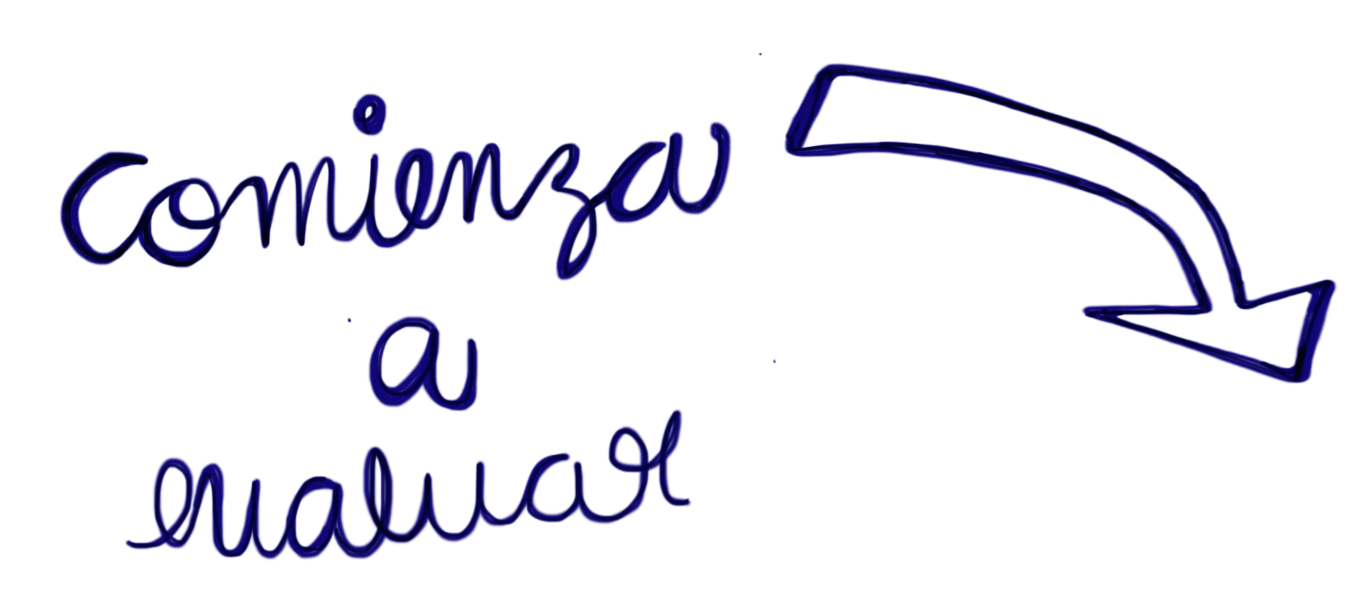 comienza
a
evaluar